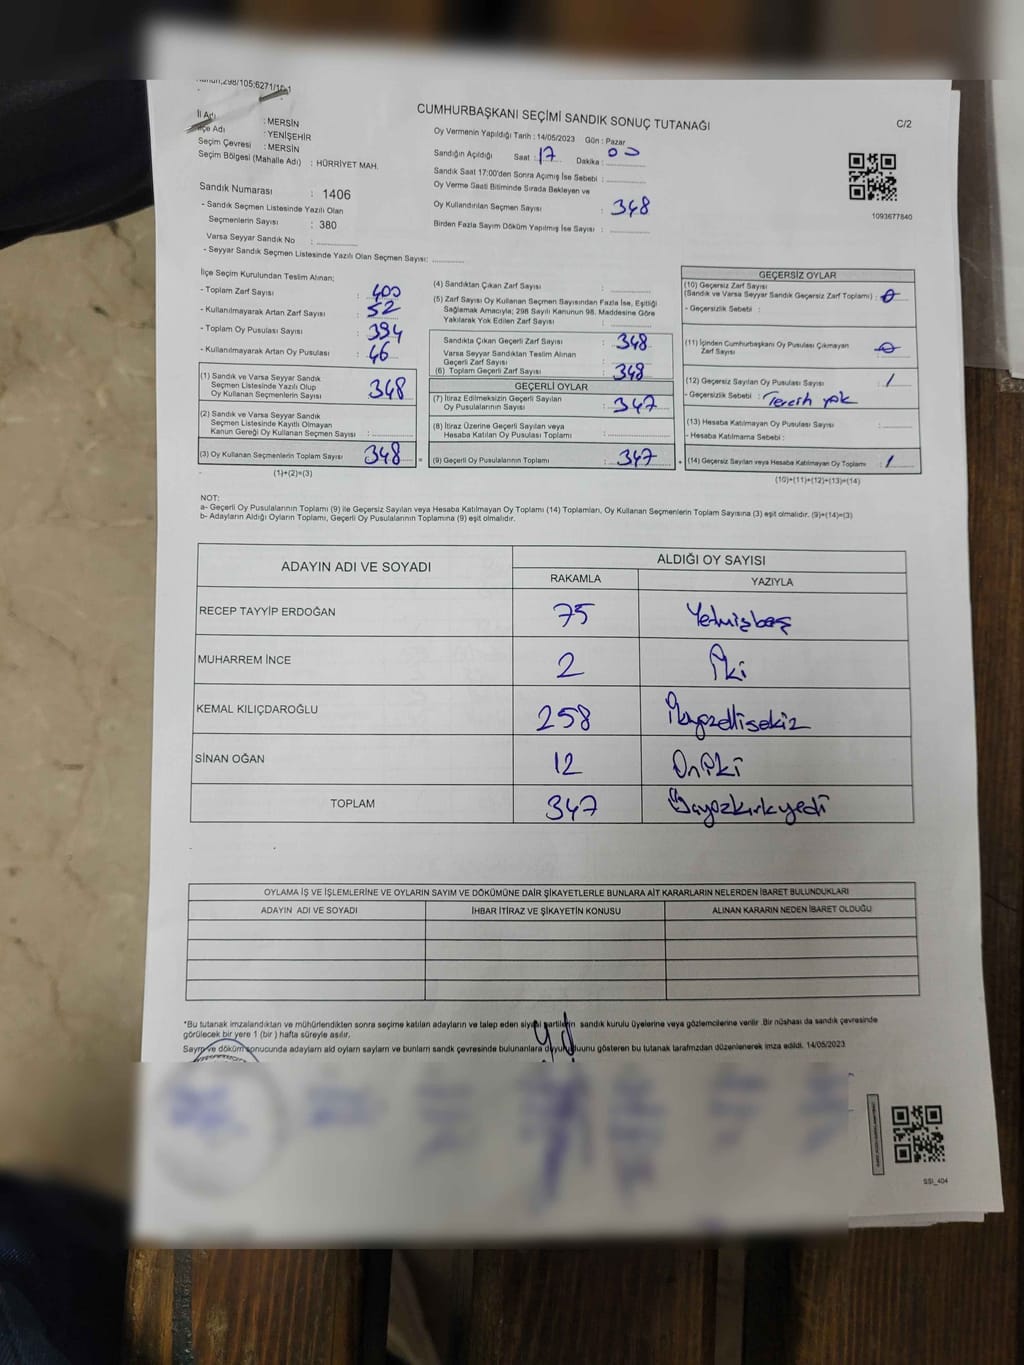 Kanun:298/105;6271/19-1
CUMHURBAŞKANI SEÇİMİ SANDIK SONUÇ TUTANAĞI
C/2
İl Adı : MERSİN
İlçe Adı : YENİŞEHİR
Seçim Çevresi : MERSİN
Seçim Bölgesi (Mahalle Adı) : HÜRRİYET MAH.
Sandık Numarası : 1406
- Sandık Seçmen Listesinde Yazılı Olan
Seçmenlerin Sayısı : 380
Varsa Seyyar Sandık No :
- Seyyar Sandık Seçmen Listesinde Yazılı Olan Seçmen Sayısı:
Oy Vermenin Yapıldığı Tarih : 14/05/2023 Gün : Pazar
Sandığın Açıldığı Saat : 17 Dakika : 00
Sandık Saat 17:00'den Sonra Açımış İse Sebebi :
Oy Verme Saati Bitiminde Sırada Bekleyen ve
Oy Kullandırılan Seçmen Sayısı : 348
Birden Fazla Sayım Döküm Yapılmış İse Sayısı :
1093677840
İlçe Seçim Kurulundan Teslim Alınan;
- Toplam Zarf Sayısı : 400
- Kullanılmayarak Artan Zarf Sayısı : 52
- Toplam Oy Pusulası Sayısı : 394
- Kullanılmayarak Artan Oy Pusulası : 46
(1) Sandık ve Varsa Seyyar Sandık
Seçmen Listesinde Yazılı Olup
Oy Kullanan Seçmenlerin Sayısı : 348
(2) Sandık ve Varsa Seyyar Sandık
Seçmen Listesinde Kayıtlı Olmayan
Kanun Gereği Oy Kullanan Seçmen Sayısı :
(3) Oy Kullanan Seçmenlerin Toplam Sayısı : 348 =
(1)+(2)=(3)
(4) Sandıktan Çıkan Zarf Sayısı :
(5) Zarf Sayısı Oy Kullanan Seçmen Sayısından Fazla İse, Eşitliği
Sağlamak Amacıyla; 298 Sayılı Kanunun 98. Maddesine Göre
Yakılarak Yok Edilen Zarf Sayısı :
Sandıkta Çıkan Geçerli Zarf Sayısı : 348
Varsa Seyyar Sandıktan Teslim Alınan
Geçerli Zarf Sayısı :
(6) Toplam Geçerli Zarf Sayısı : 348
GEÇERLİ OYLAR
(7) İtiraz Edilmeksizin Geçerli Sayılan
Oy Pusulalarının Sayısı : 347
(8) İtiraz Üzerine Geçerli Sayılan veya
Hesaba Katılan Oy Pusulası Toplamı :
(9) Geçerli Oy Pusulalarının Toplamı : 347 +
GEÇERSİZ OYLAR
(10) Geçersiz Zarf Sayısı
(Sandık ve Varsa Seyyar Sandık Geçersiz Zarf Toplamı) : 0
- Geçersizlik Sebebi :
(11) İçinden Cumhurbaşkanı Oy Pusulası Çıkmayan
Zarf Sayısı : 0
(12) Geçersiz Sayılan Oy Pusulası Sayısı : 1
- Geçersizlik Sebebi : Tercih yok
(13) Hesaba Katılmayan Oy Pusulası Sayısı :
- Hesaba Katılmama Sebebi :
(14) Geçersiz Sayılan veya Hesaba Katılmayan Oy Toplamı : 1
(10)+(11)+(12)+(13)=(14)
NOT:
a- Geçerli Oy Pusulalarının Toplamı (9) ile Geçersiz Sayılan veya Hesaba Katılmayan Oy Toplamı (14) Toplamları, Oy Kullanan Seçmenlerin Toplam Sayısına (3) eşit olmalıdır. (9)+(14)=(3)
b- Adayların Aldığı Oyların Toplamı, Geçerli Oy Pusulalarının Toplamına (9) eşit olmalıdır.
ADAYIN ADI VE SOYADI ALDIĞI OY SAYISI
RAKAMLA YAZIYLA
RECEP TAYYİP ERDOĞAN 75 Yetmişbeş
MUHARREM İNCE 2 İki
KEMAL KILIÇDAROĞLU 258 İkiyüzellisekiz
SİNAN OĞAN 12 Oniki
TOPLAM 347 Üçyüzkırkyedi
OYLAMA İŞ VE İŞLEMLERİNE VE OYLARIN SAYIM VE DÖKÜMÜNE DAİR ŞİKAYETLERLE BUNLARA AİT KARARLARIN NELERDEN İBARET BULUNDUKLARI
ADAYIN ADI VE SOYADI İHBAR İTİRAZ VE ŞİKAYETİN KONUSU ALINAN KARARIN NEDEN İBARET OLDUĞU
*Bu tutanak imzalandıktan ve mühürlendikten sonra seçime katılan adayların ve talep eden siyasi partilerin sandık kurulu üyelerine veya gözlemcilerine verilir .Bir nüshası da sandık çevresinde
görülecek bir yere 1 (bir ) hafta süreyle asılır.
Sayım ve döküm sonucunda adayların ald oyların sayıların ve bunların sandk çevresinde bulunanlara gösteren bu tutanak tarafmzdan düzenlenerek imza edildi. 14/05/2023
SSI_404